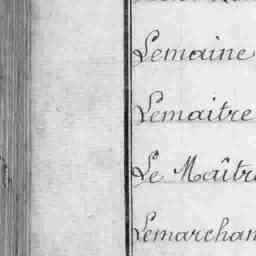 Lemaine
Lemaitre
Le Maîtr
Lemarchan